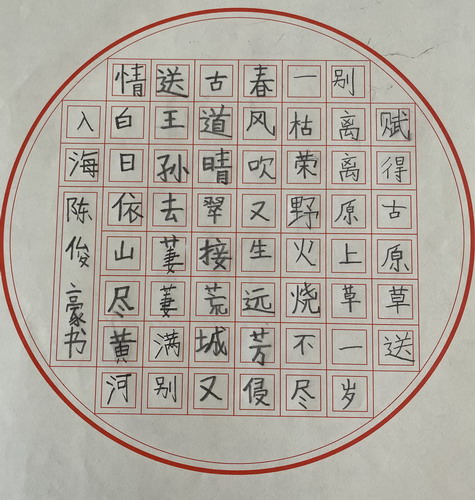 赋得古原草送
别离离原上草一岁
一枯荣野火烧不尽
春风吹又生远芳侵
古道晴翠接荒城又
送王孙去萋萋满别
情白日依山尽黄河
入海陈俊豪书